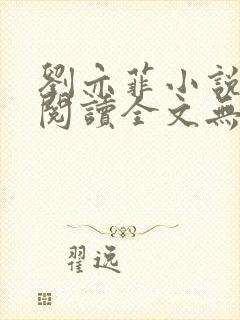 劉亦菲小說
閱讀全文無
翟逸